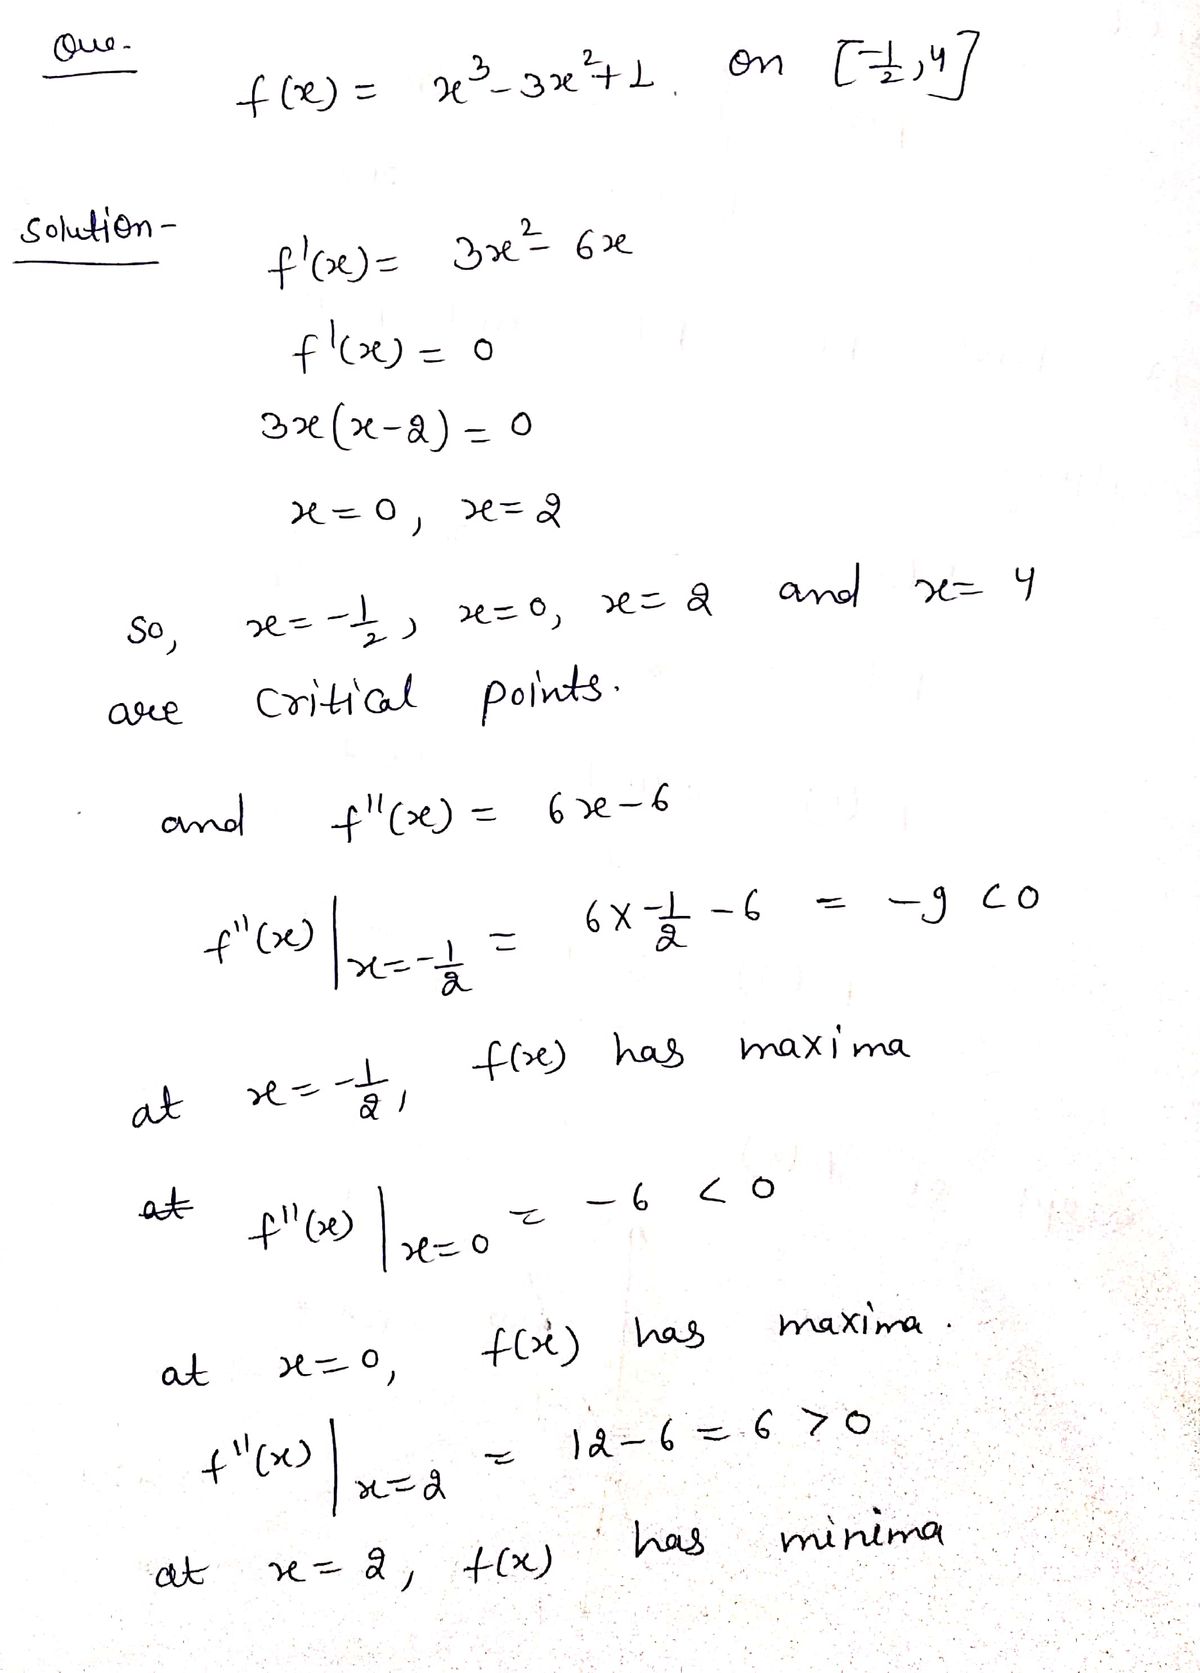 Que.
f(x) = x³ - 3x² + 1. on [-1/2, 4]
Solution -
f'(x) = 3x² - 6x
f'(x) = 0
3x(x-2) = 0
x = 0, x = 2
So, x = -1/2, x = 0, x = 2 and x = 4
are critical points.
and f''(x) = 6x - 6
f''(x)|x=-1/2 = 6 × -1/2 - 6 = -9 < 0
at x = -1/2, f(x) has maxima
at f''(x)|x=0 = -6 < 0
at x = 0, f(x) has maxima.
f''(x)|x=2 = 12 - 6 = 6 > 0
at x = 2, f(x) has minima